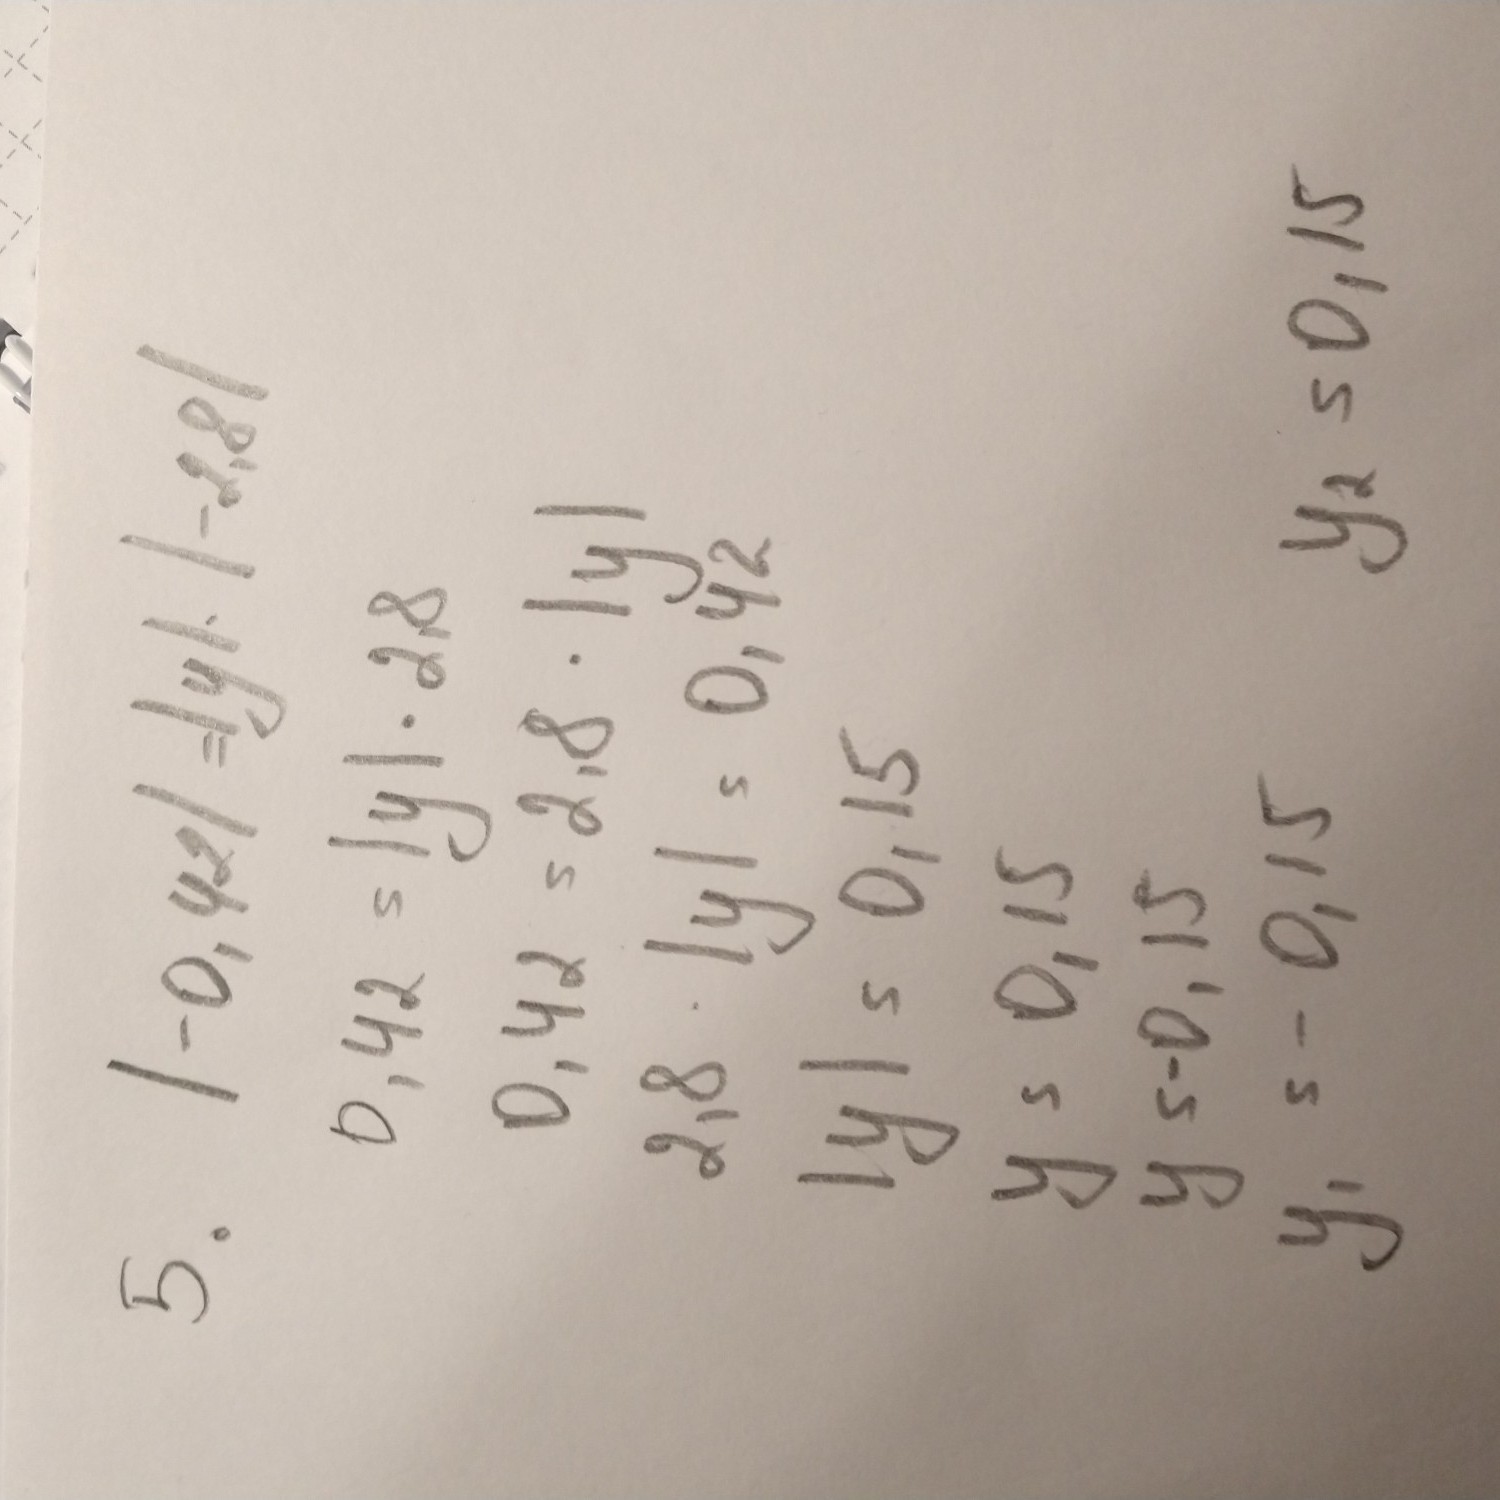 5. |-0,42| = |y| · |-2,8|
0,42 = |y| · 2,8
0,42 = 2,8 · |y|
2,8 · |y| = 0,42
|y| = 0,15
y = 0,15
y = -0,15
y₁ = -0,15 y₂ = 0,15